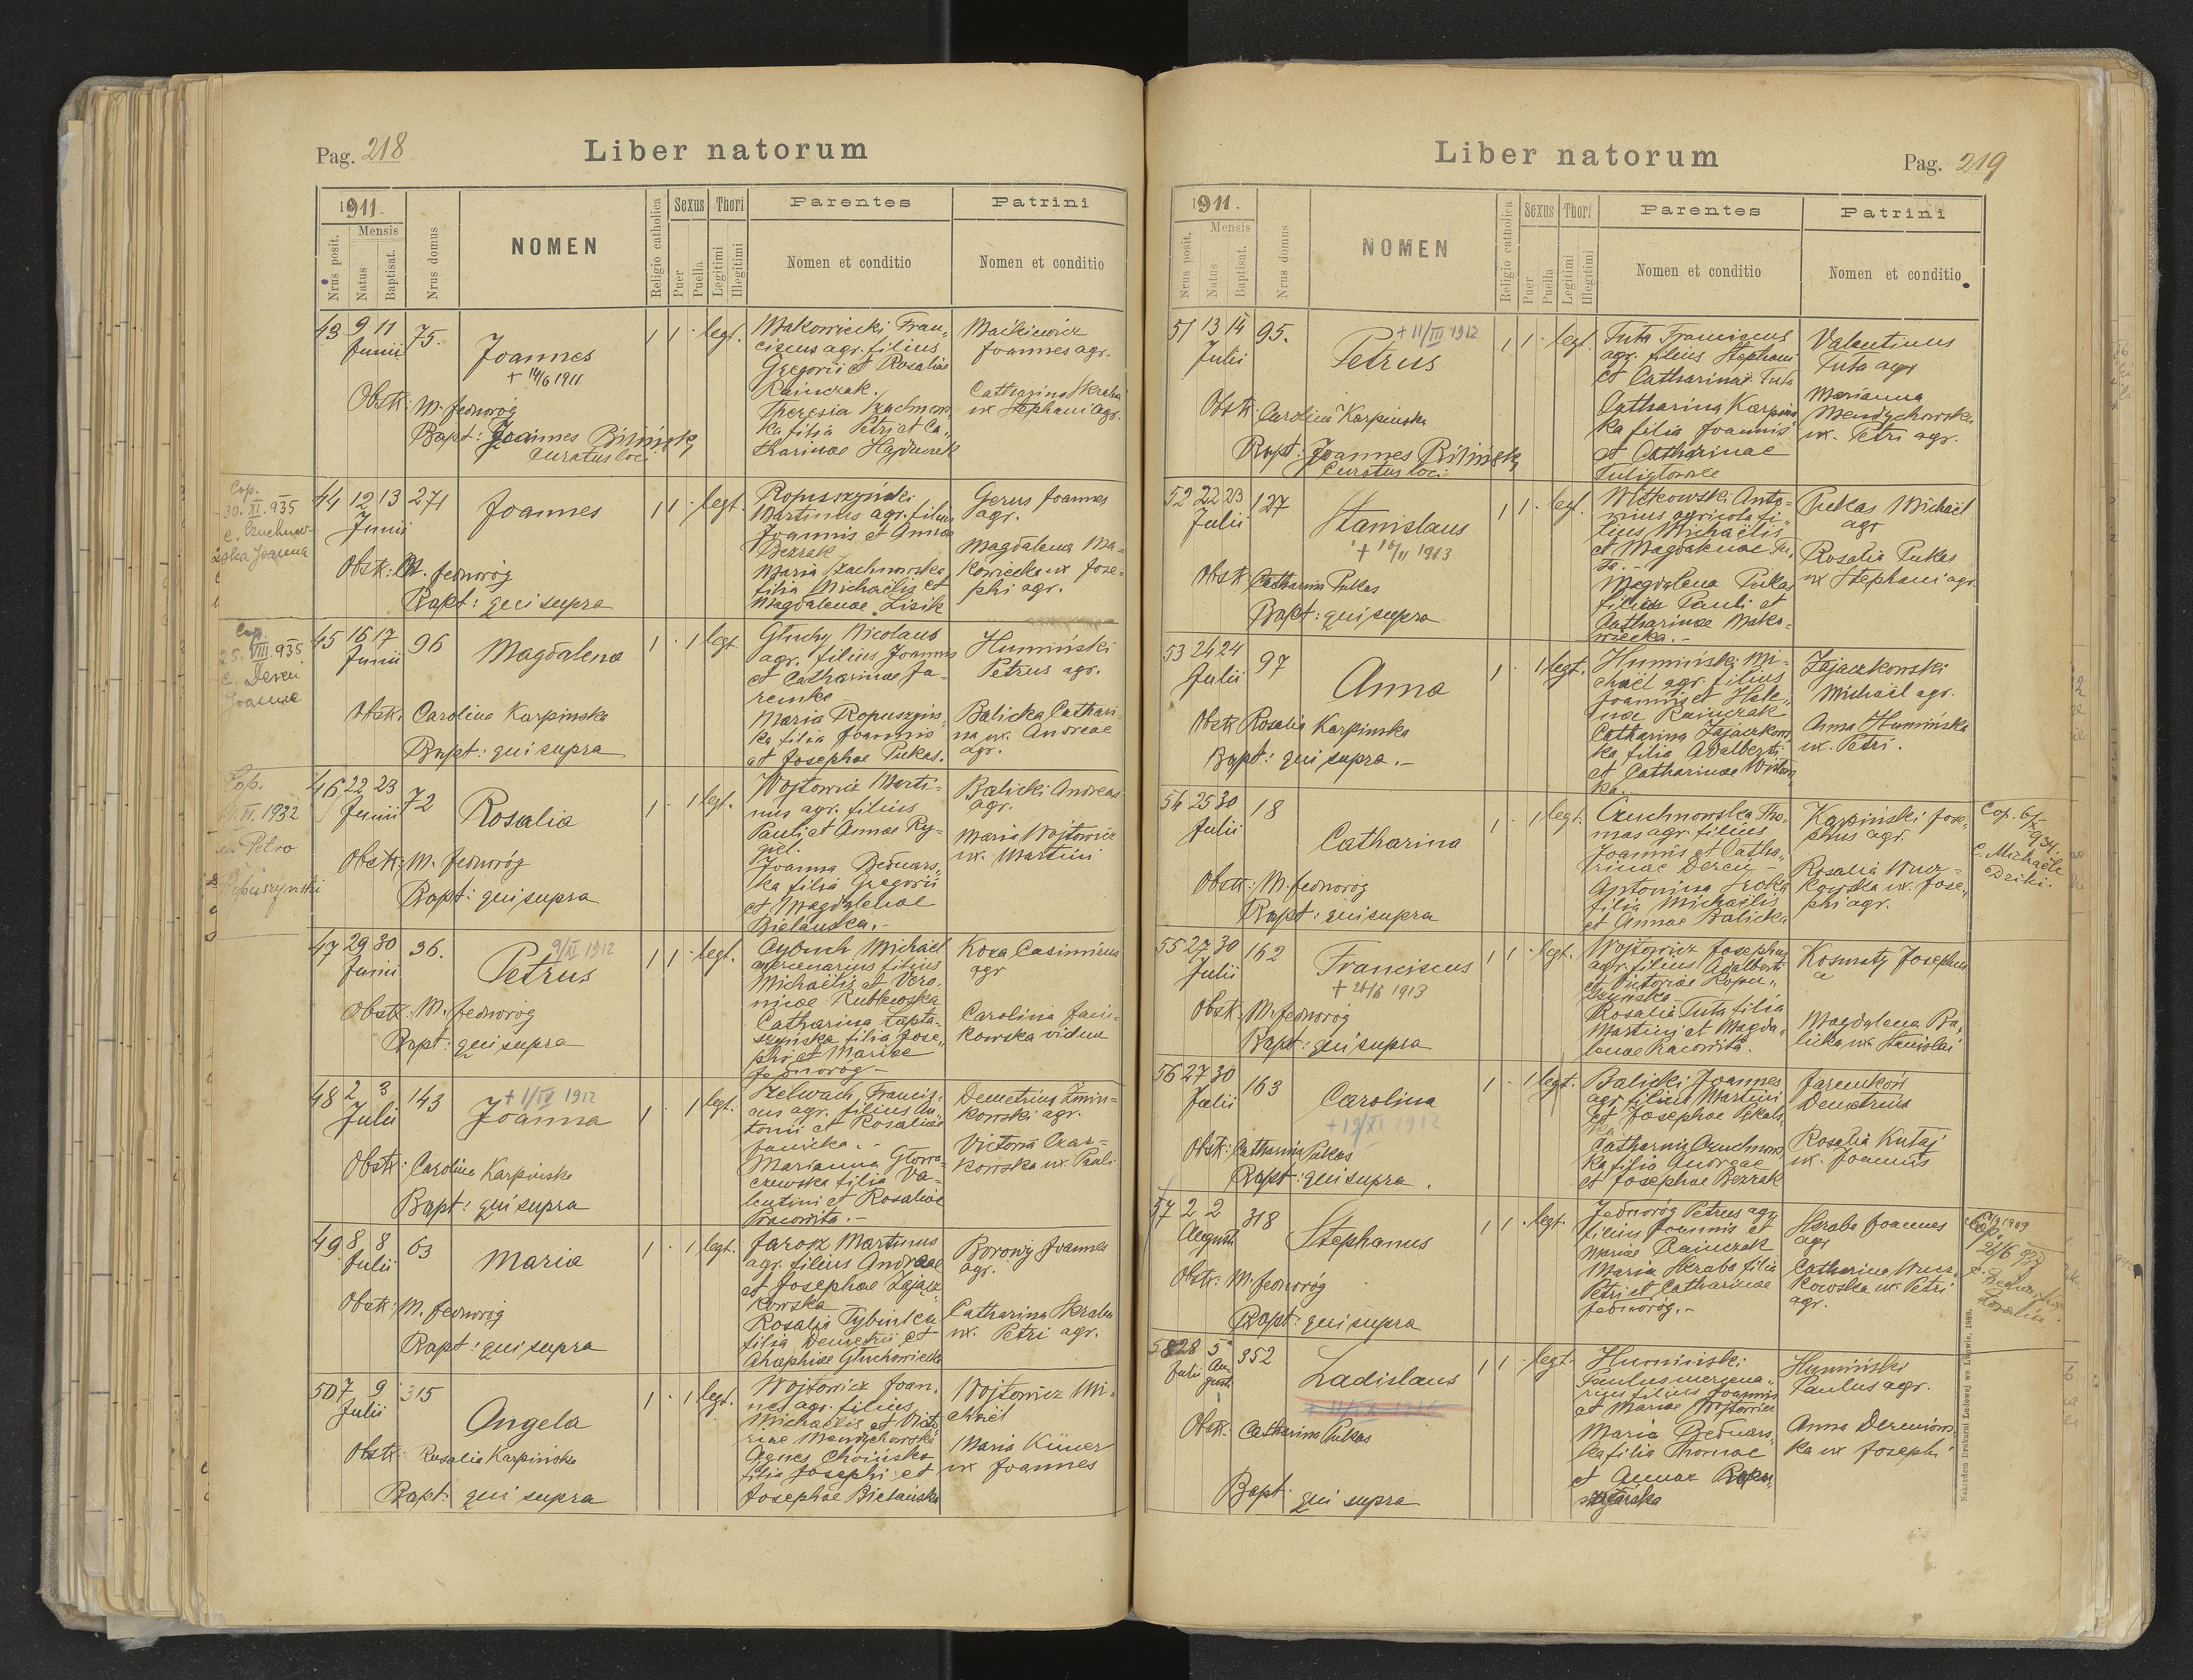 Pag. 218
Liber natorum
1911.
Mensis
Nrus posit.
Natus
Baptisat.
Nrus domus
NOMEN
Religio catholica
Sexus
Puer
Puella
Thori
Legitimi
Illegitimi
Parentes
Nomen et conditio
Patrini
Nomen et conditio
43 9 11 75.
Junii
Joannes
+ 14/6 1911
Obstk: M. Jednoróg
Bapt: Joannes Biliński
Curatus loci
1 1 · legt.
Makowiecki Fran„
ciscus agr. filius
Gregorii et Rosaliae
Rainczak.
Theresia Szachnow
ka filia Petri et Ca„
tharinae Hajduczek
Maćkiewicz
Joannes agr.
Catharina Skraba
ux Stephani agr.
Cop.
30. XI. 935
c. Czuchnow-
ska Joanna
44 12 13 271
Junii
Joannes
Obstk: M. Jednoróg
Bapt: qui supra
1 1 · legt.
Ropuszyński
Martinus agr. filius
Joannis et Annae
Bezzak
Maria Szachnowska
filia Michaëlis et
Magdalenae Lisik
Gerus Joannes
agr.
Magdalena Ma=
kowiecka ux Jose=
phi agr.
Cop.
25. VIII. 935
c. Dereń
Joanne
45 16 17 96
Junii
Magdalena
Obstk: Carolina Karpinska
Bapt: qui supra
1 · 1 legt
Głuchy Nicolaus
agr. filius Joannis
et Catharinae Ja-
remko
Maria Ropuszyńs„
ka filia Joannis
et Josephae Pukas.
Humiński
Petrus agr.
Balicka Cathari
na ux. Andreae
agr.
Cop.
VI. 1932
c. Petro
Ropuszynski
46 22 23 72
Junii
Rosalia
Obstk: M. Jednoróg
Bapt: qui supra
1 · 1 legt.
Wojtowicz Marti=
nus agr. filius
Pauli et Annae Ry-
giel.
Joanna Bednars„
ka filia Gregorii
et Magdalenae
Bielańska.-
Balicki Andreas
agr.
Maria Wojtowicz
ux. Martini
47 29 30 36.
Junii
9/XI 1912
Petrus
Obstk: M. Jednoróg
Bapt: qui supra
1 1 · legt.
Cybuch Michaël
mercenarius filius
Michaëlis et Vero„
nicae Rutkowska
Catharina Łapta-
szyńska filia Jose„
phi et Mariae
Jednoróg-
Koza Casimirus
agr
Carolina Jani=
kowska vidua
48 2 3 143
Julii
+ 1/IV 1912
Joanna
Obstk: Carolina Karpinska
Bapt: qui supra
1 · 1 legt.
Szelwach Francis„
cus agr. filius An„
tonii et Rosaliae
Janicka.-
Marianna Głowa-
czewska filia Va-
lentini et Rosaliae
Pracowita.-
Demetrius Zmin=
kowski agr.
Victoria Czar=
kowska ux. Pauli
49 8 8 63
Julii
Maria
Obstk: M. Jednoróg
Bapt: qui supra
1 · 1 legt.
Jarosz Martinus
agr. filius Andreae
et Josephae Zającz
kowska
Rosalia Tybinka
filia Demetrii et
Głuchowiecka
Borowy Joannes
agr.
Catharina Skraba
ux. Petri agr.
50 7 9 315
Julii
Angela
Obstk: Rosalia Karpińska
Bapt: qui supra
1 · 1 legt.
Wojtowicz Joan„
nes agr. filius
Michaëlis et Victo
riae Mendychowski
Agnes Choińska
filia Josephi et
Josephae Bielańska
Wojtowicz Mi„
chaël
Maria Küner
ux Joannes
Liber natorum
Pag. 219
1911.
Mensis
Nrus posit.
Natus
Baptisat.
Nrus domus
NOMEN
Religio catholica
Sexus
Puer
Puella
Thori
Legitimi
Illegitimi
Parentes
Nomen et conditio
Patrini
Nomen et conditio
51 13 14 95.
Julii
+ 11/III 1912
Petrus
Obstk: Carolina Karpinska
Bapt: Joannes Biliński
Curatus loci
1 1 · legt.
Tuta Franciscus
agr. filius Stephani
et Catharinae Tuta
Catharina Karpins
ka filia Joannis
et Catharinae
Valentinus
Tuta agr
Marianna
Mendychowska
ux. Petri agr.
52 22 23 127
Julii
Stanislaus
+ 16/II 1913
Obstk Catharina Pukas
Bapt: qui supra
1 1 · legt.
Witkowski Anto-
nius agricola fi„
lius Michaëlis
et Magdalenae Tu„
ta.-
Magdalena Pukas
filia Pauli et
Catharinae Mako-
wiecka.-
Pukas Michaël
agr
Rosalia Pukas
ux Stephani agr.
53 24 24 97
Julii
Anna
Obstk Rosalia Karpinska
Bapt: qui supra.-
1 · 1 legt.
Humiński Mi-
chaël agr. filius
Joannis et Hele„
nae Rainczak
Catharina Zajączkows
ka filia Adalberti
et Catharinae
ka.-
Zajaczkowski
Michaël agr.
Anna Humińska
ux. Petri.
54 25 30 18
Julii
Catharina
Obstk: M. Jednoróg
Bapt: qui supra
1 · 1 legt.
Czuchnowska Tho„
mas agr. filius
Joannis et Catha„
rinae Dereń -
Antonina Sroka
filia Michaëlis
et Annae Balicka
Karpinski Jose„
phus agr.
Rosalia Wucz-
kowska ux. Jose„
phi agr.
Cop. 6/X
934.
c. Michaële
Dziki.
55 27 30 162
Julii
Franciscus
+ 26/8 1913
Obstk. M. Jednoróg
Bapt: qui supra
1 1 · legt.
Wojtowicz Josephus
agr. filius Adalberti
et Victoriae Ropu„
szyńska
Rosalia Tuta filia
Martini et Magda„
lenae Pracowita.
Kosmaty Josephus
a
Magdalena Ba„
licka ux. Stanislai
56 27 30 163
Julii
Carolina
+ 19/XI 1912
Obstk: Catharina Pukas
Bapt: qui supra.
1 · 1 legt.
Balicki Joannes
agr. filius Martini
et Josephae
ka
Catharina Czuchnows
ka filia Andreae
et Josephae Bezzak
Jaremkoń
Demetrius
Rosalia Kutaj
ux. Joannis
57 2 2 318
Augusti
Stephanus
Obstk: M. Jednoróg
Bapt: qui supra
1 1 · legt.
Jednoróg Petrus agr
filius Joannis et
Mariae Rainczak
Maria Skraba filia
Petri et Catharinae
Jednoróg.-
Skraba Joannes
agr
Catharina Wucz„
kowska ux. Petri
agr.
Cop.
58 28 5 352
Julii Au-
gusti
Ladislaus
Obstk. Catharina Pukas
Bapt. qui supra
1 1 · legt.
Humiński
Paulus mercena„
rius filius Joannis
et Mariae Wojtowicz
Maria Bednars„
ka filia Thomae
et Annae Ropu„
Humiński
Paulus agr.
Anna Dereniows
ka ux Josephi
Nakładem Drukarni Ludowej we Lwowie, 1889.